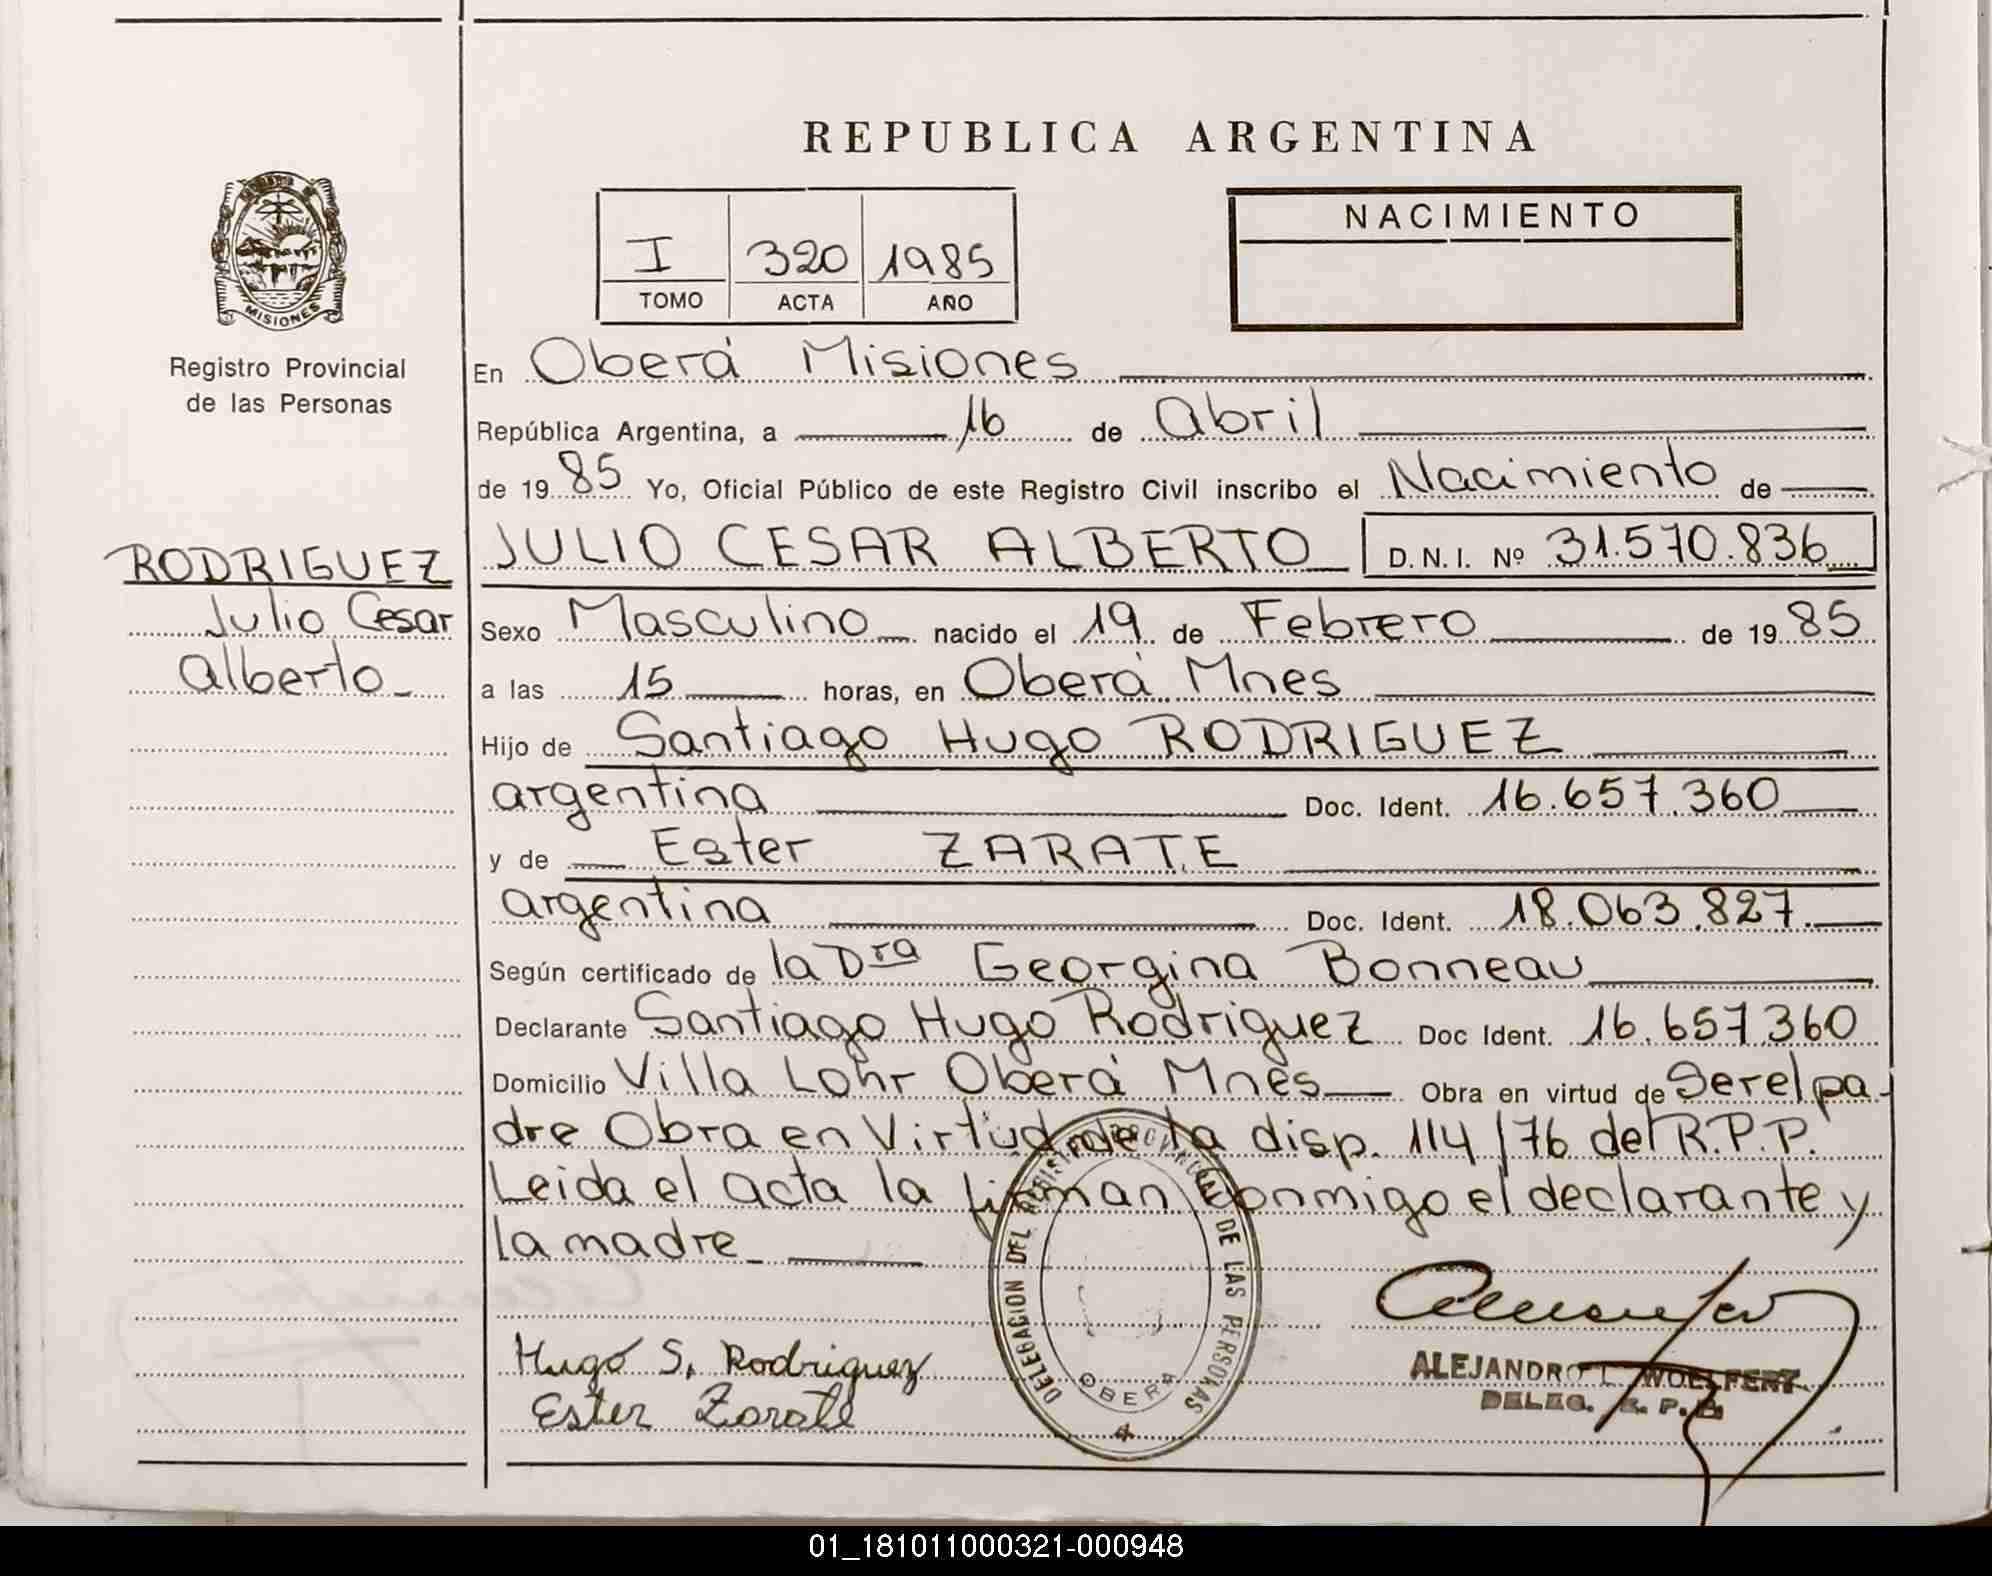 REPUBLICA ARGENTINA
NACIMIENTO
I 320 1985
TOMO ACTA AÑO
MISIONES
Registro Provincial
de las Personas
En Oberá Misiones
República Argentina, a 16 de abril
de 1985 Yo, Oficial Público de este Registro Civil inscribo el Nacimiento de
JULIO CESAR ALBERTO D.N.I. Nº 31.570.836
RODRIGUEZ
Julio Cesar
alberto
Sexo Masculino nacido el 19 de Febrero de 1985
a las 15 horas, en Oberá Mnes
Hijo de Santiago Hugo RODRIGUEZ
argentina Doc. Ident. 16.657.360
y de Ester ZARATE
argentina Doc. Ident. 18.063.827
Según certificado de la Dra Georgina Bonneau
Declarante Santiago Hugo Rodriguez Doc Ident. 16.657.360
Domicilio Villa Lohr Oberá Mnes Obra en virtud de Ser el pa-
dre Obra en Virtud de la disp. 114/76 del R.P.P.
Leida el acta la firman conmigo el declarante y
la madre
DELEGACION DEL REGISTRO PROVINCIAL DE LAS PERSONAS
OBERA
Hugo S. Rodriguez
Ester Zarate
ALEJANDRO L. WOELFERT
DELEG. R. P. P.
01_181011000321-000948